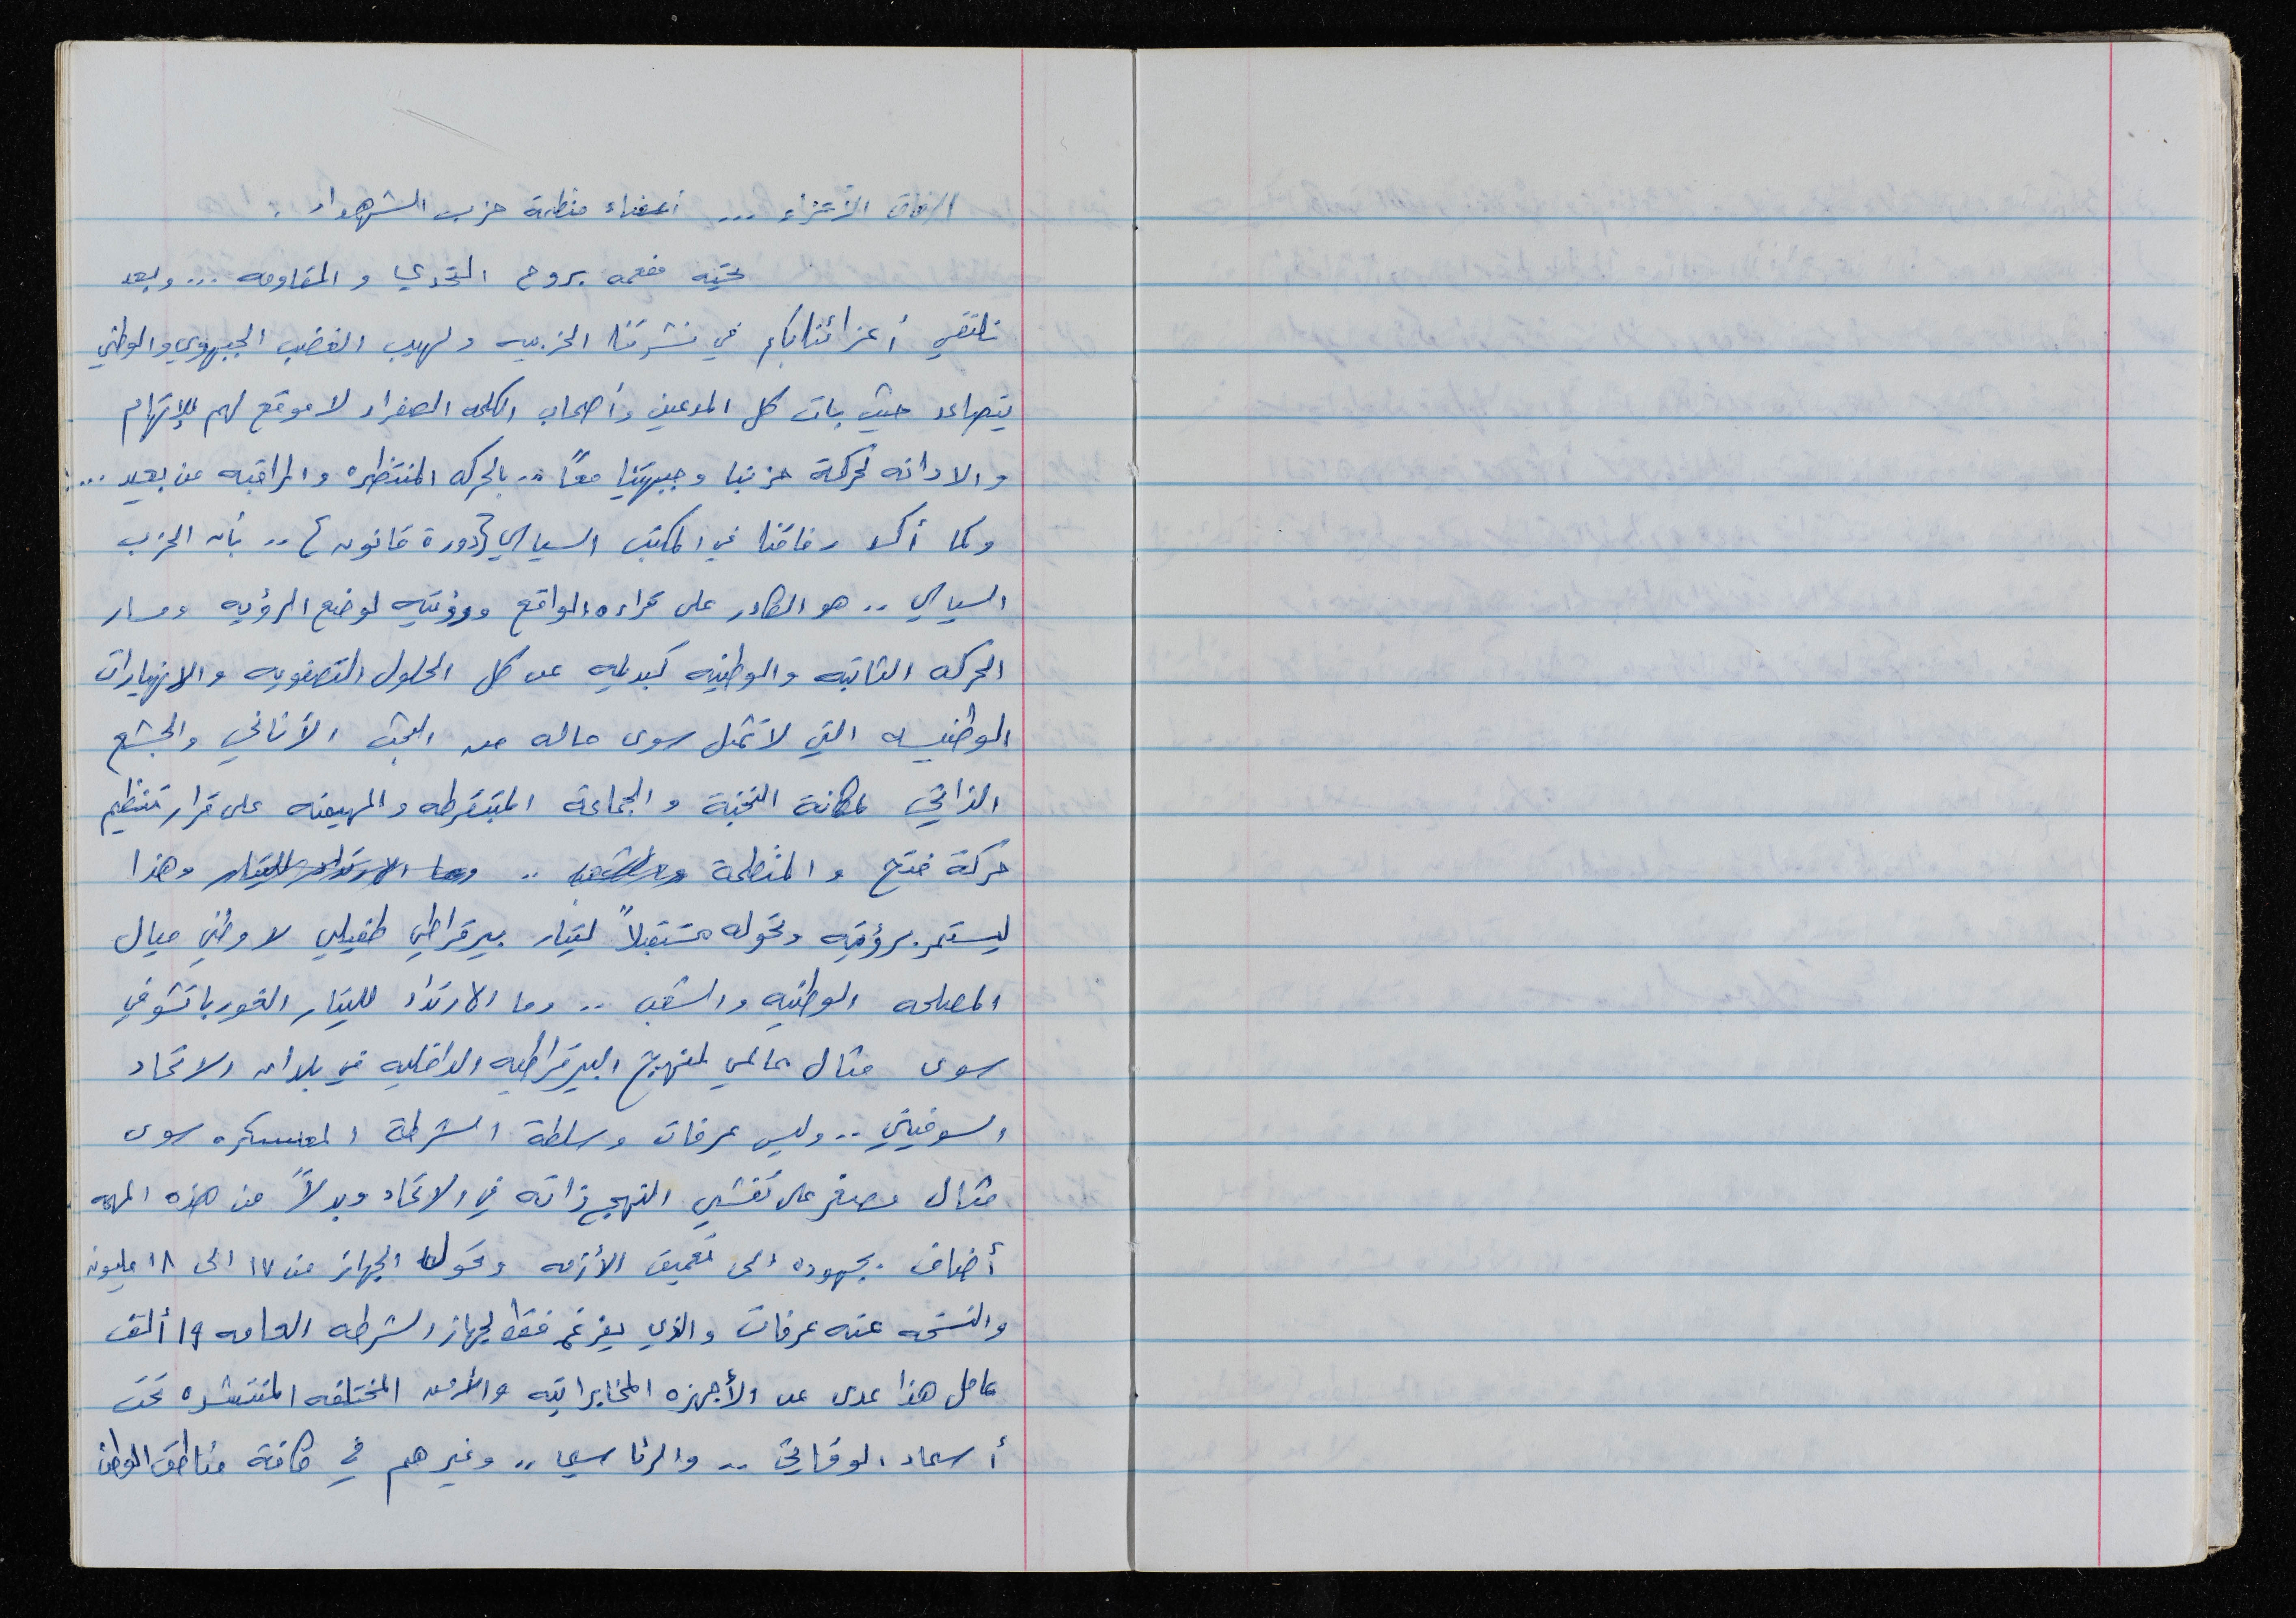 الرفاق الأعزاء ... أعضاء منظمة حزب الشهداء .
تحيه مفعمه بروح التحدي و المقاومه ... وبعد
نلتقي أعزائنا بكم في نشرتنا الحزبيه ولهيب الغضب الجبهوي والوطني
يتصاعد حيث بات كل المدعين وأصحاب الكلمه الصفراء لا موقع لهم للإتهام
والادانه لحركة حزبنا وجبهتنا معاً .. بالحركه المنتظره والمراقبه عن بعيد ...
وكما أكد رفاقنا في المكتب السياسي { دورة قانون } .. بأن الحزب
السياسي .. هو القادر على قراءه الواقع ورؤيته لوضع الرؤيه ومسار
الحركه الثابته والوطنيه كبديله عن كل الحلول التصفويه والانهيارات
الوطنيه التي لا تمثل سوى حاله من البحث الأناني والجشع
الذاتي لمكانة النخبة و الجماعة المتبقرطه والمهيمنه على قرار تنظيم
حركة فتح و المنظمة والشعب .. وما الارتداد للتيار وهذا
ليستمر برؤيته وتحوله مستقبلاً لتيار بيرقراطي طفيلي لا وطني حيال
المصلحه الوطنيه والشعب .. وما الارتداد للتيار الغورباتشوفي
سوى مثال عالمي لمنهج البيرقراطيه الداخليه في بلدان الاتحاد
السوفيتي .. وليس عرفات وسلطة الشرطة المعسكره سوى
مثال مصغر على تفشي المنهج ذاته في الاتحاد وبدلاً من هذه المهمه
أضاف بجهوده الى تعميق الأزمه وتحول الجهاز من ١٧ الى ١٨ مليون
والنسخه عنه عرفات والذي يفرغ فقط لجهاز الشرطه العامه ١٩ ألف
عامل هذا عدى عن الأجهزه المخابراتيه والأمن المختلفه المنتشره تحت
أسماء الوقائي .. والرئاسي .. وغيرهم في كافة مناطق الوطن